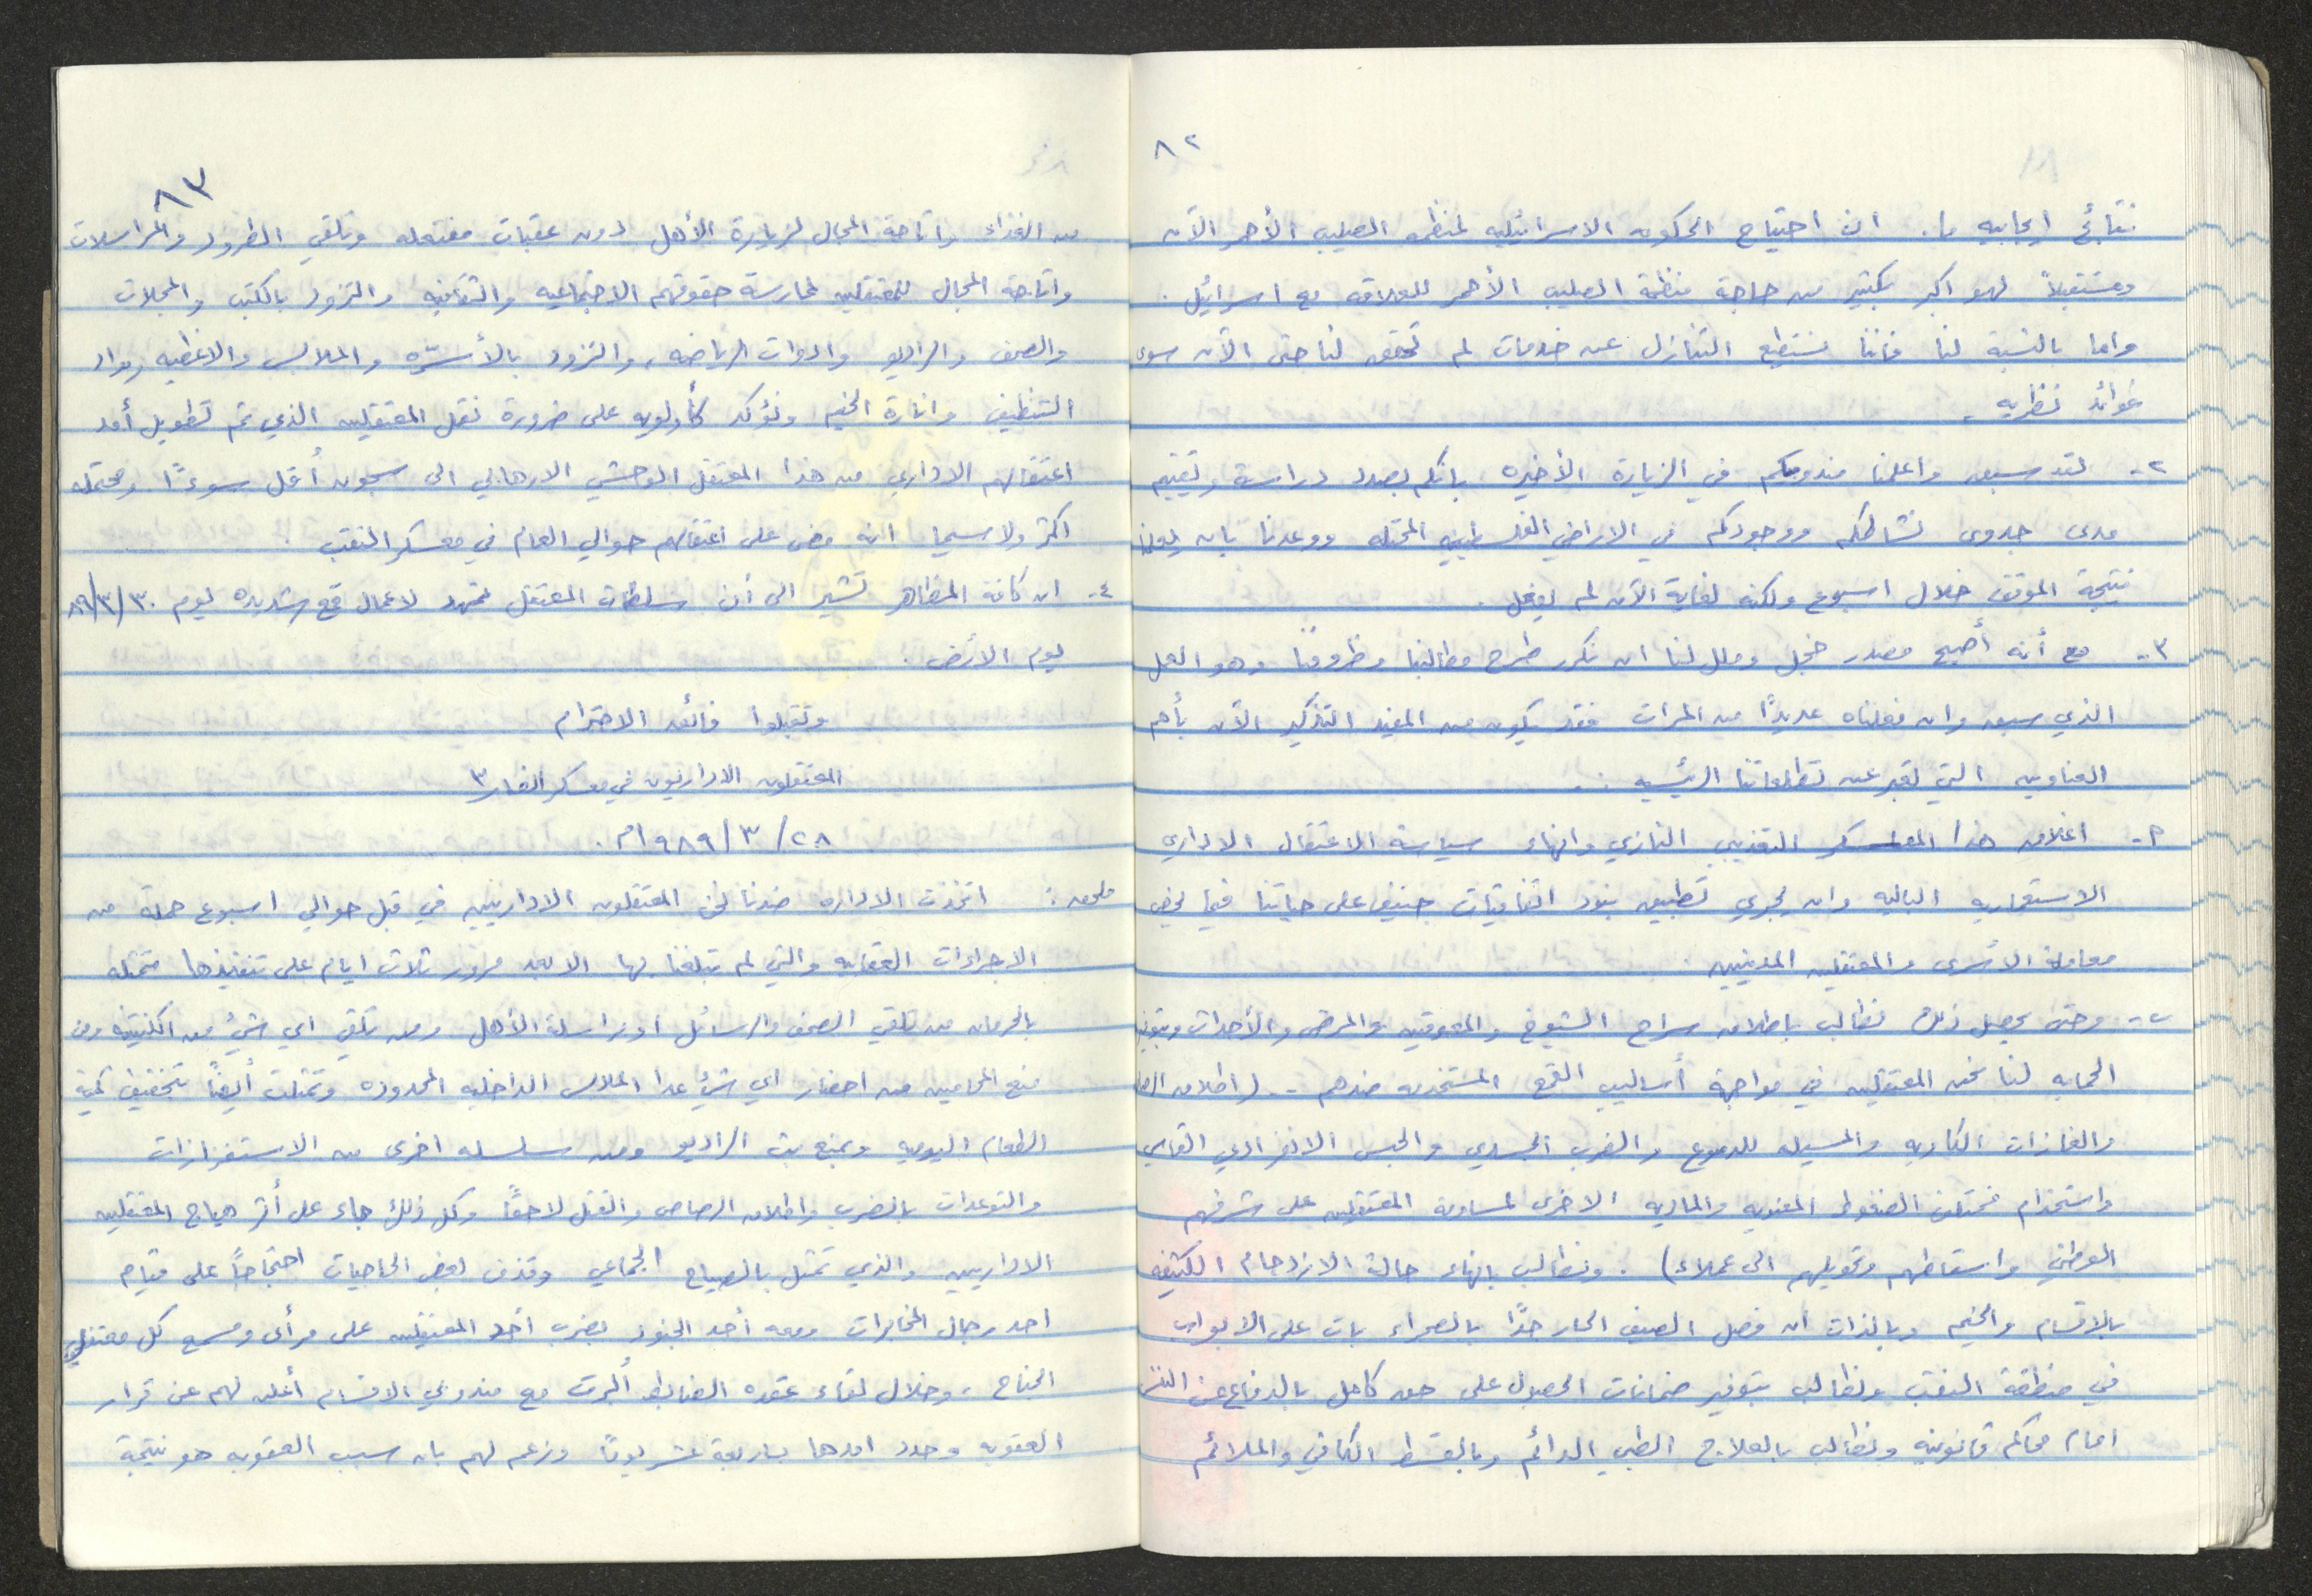 ٨٢
نتائج ايجابيه ما. ان احتياج الحكومه الاسرائيليه لمنظمه الصليب الأحمر الآن
ومستقبلاً لهو اكبر بكثير من حاجة منظمة الصليب الأحمر للعلاقه مع اسرائيل.
واما بالنسبة لنا فاننا نستطيع التنازل عن خدمات لم تحقق لنا حتى الآن سوى
فوائد نظريه.
٢- لقد سبق واعلمنا مندوبكم في الزيارة الأخيره بانكم بصدد دراسة وتقييم
مدى جدوى نشاطكم ووجودكم في الاراضي الفلسطينيه المحتله ووعدنا بان يعلمنا
نتيجة الموقف خلال اسبوع ولكنه لغاية الآن لم يفعل.
٣- مع أنه أصبح مصدر خجل وملل لنا ان نكرر طرح مطالبنا وظروفنا وهو العمل
الذي سبق وان فعلناه عديدًا من المرات فقد يكون من المفيد التذكير الآن بأهم
العناوين التي تعبر عن تطلعاتنا الرئيسيه:.
٢- اغلاق هذا المعسكر التعذيبي النازي وانهاء سياسة الاعتقال الاداري
الاستعماريه الباليه وان يجري تطبيق بنود اتفاقيات جنيف على حياتنا فيما يخص
معاملة الأسرى والمعتقلين المدنيين.
ب- وحتى يحصل ذلك نطالب باطلاق سراح الشيوخ والمعوقين والمرضى والأحداث وبتوفير
الحمايه لنا نحن المعتقلين في مواجهة أساليب القمع المستخدمه ضدهم -. (اطلاق الرصاص
والغازات الكاويه والمسيله للدموع والضرب الجسدي والحبس الانفرادي القاسي
واستخدام مختلف الضغوط المعنويه والماديه الاخرى لمساومة المعتقلين على شرفهم
الوطني واسقاطهم وتحويلهم الى عملاء). ونطالب بانهاء حالة الازدحام الكثيفه
بالاقسام والخيم وبالذات ان فصل الصيف الحار جدًا بالصحراء بات على الابواب
في منطقة النقب ونطالب بتوفير ضمانات الحصول على حق كامل بالدفاع عن النفس
امام محاكم قانونيه ونطالب بالعلاج الطبي الدائم وبالقسط الكافي والملائم
٨٣
من الغذاء واتاحة المجال لزيارة الأهل دون عقبات مفتعله وتلقي الطرود والمراسلات
واتاحة المجال للمعتقلين لممارسة حقوقهم الاجتماعيه والثقافيه والتزود بالكتب والمجلات
والصحف والراديو وادوات الرياضه، والتزود بالأسرّه والملابس والاغطيه ومواد
التنظيف وانارة الخيم ونؤكد كأولويه على ضرورة نقل المعتقلين الذي تم تطويل أمد
اعتقالهم الاداري من هذا المعتقل الوحشي الارهابي الى سجون أقل سوءًا ومحتمله
اكثر ولا سيما انه مضى على اعتقالهم حوالي العام في معسكر النقب.
٤- ان كافة المظاهر تشير الى أن سلطات المعتقل تمهد لاعمال قمع شديده ليوم ٣٠/٣/٨٩
يوم الارض.
وتقبلوا فائق الاحترام
المعتقلون الاداريون في معسكر انصار ٣
٢٨/٣/١٩٨٩م.
ملحق: اتخذت الاداره ضدنا نحن المعتقلون الاداريين في قبل حوالي اسبوع حملة من
الاجراءات العقابيه والتي لم تبلغنا بها الا بعد مرور ثلاث ايام على تنفيذها متمثله
بالحرمان من تلقي الصحف والرسائل او مراسلة الأهل ومن تلقي اي شيء من الكنتينه ومن
منع المحامين من احضار اي شيء عدا الملابس الداخليه المحدوده وتمثلت أيضًا بتخفيف كمية
الطعام اليوميه وبمنع بث الراديو ومن سلسله اخرى من الاستفزازات
والتوعدات بالضرب واطلاق الرصاص والقتل لاحقًا وكل ذلك جاء على أثر هياج المعتقلين
الاداريين والذي تمثل بالصياح الجماعي وقذف بعض الحاجيات احتجاجًا على قيام
احد رجال المخابرات ومعه أحد الجنود بضرب أحد المعتقلين على مرأى ومسمع كل معتقلي
الجناح، وخلال لقاء عقده الضابط ألبرت مع مندوبي الاقسام أعلن لهم عن قرار
العقوبه وحدد امدها باربعة عشر يومًا وزعم لهم بان سبب العقوبه هو نتيجة